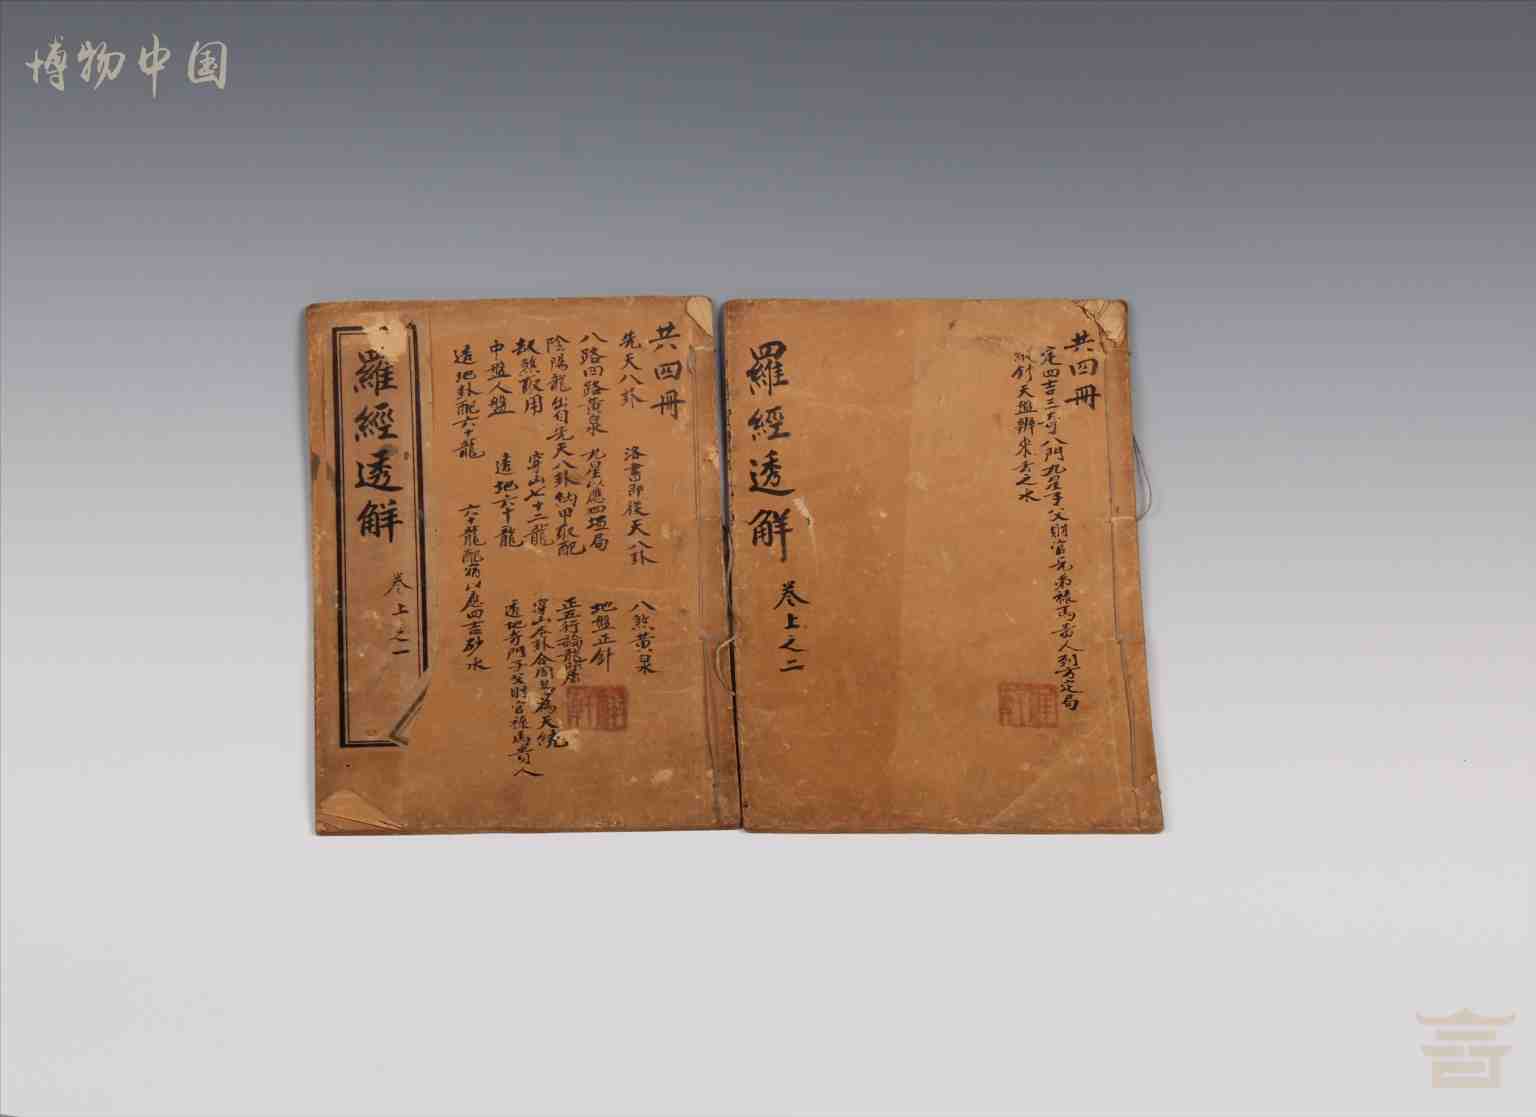 博物中国
共四冊
先天八卦 洛書即後天八卦 八煞黃泉
八路四路黃泉 九星以應四垣局 地盤正針
陰陽龍出自先天八卦納甲取配 正五行論龍
劫煞取用 穿山七十二龍 穿山本卦合周易為天統
中盤人盤 透地六十龍 透地奇門子父財官祿馬貴人
透地卦配六十龍 六十龍配宿以應四吉砂水
羅經透解
卷上之一
共四冊
定四吉三奇八門九星子父財官兄弟祿馬貴人到方定局
針天盤辨來去之水
羅經透解
卷上之二